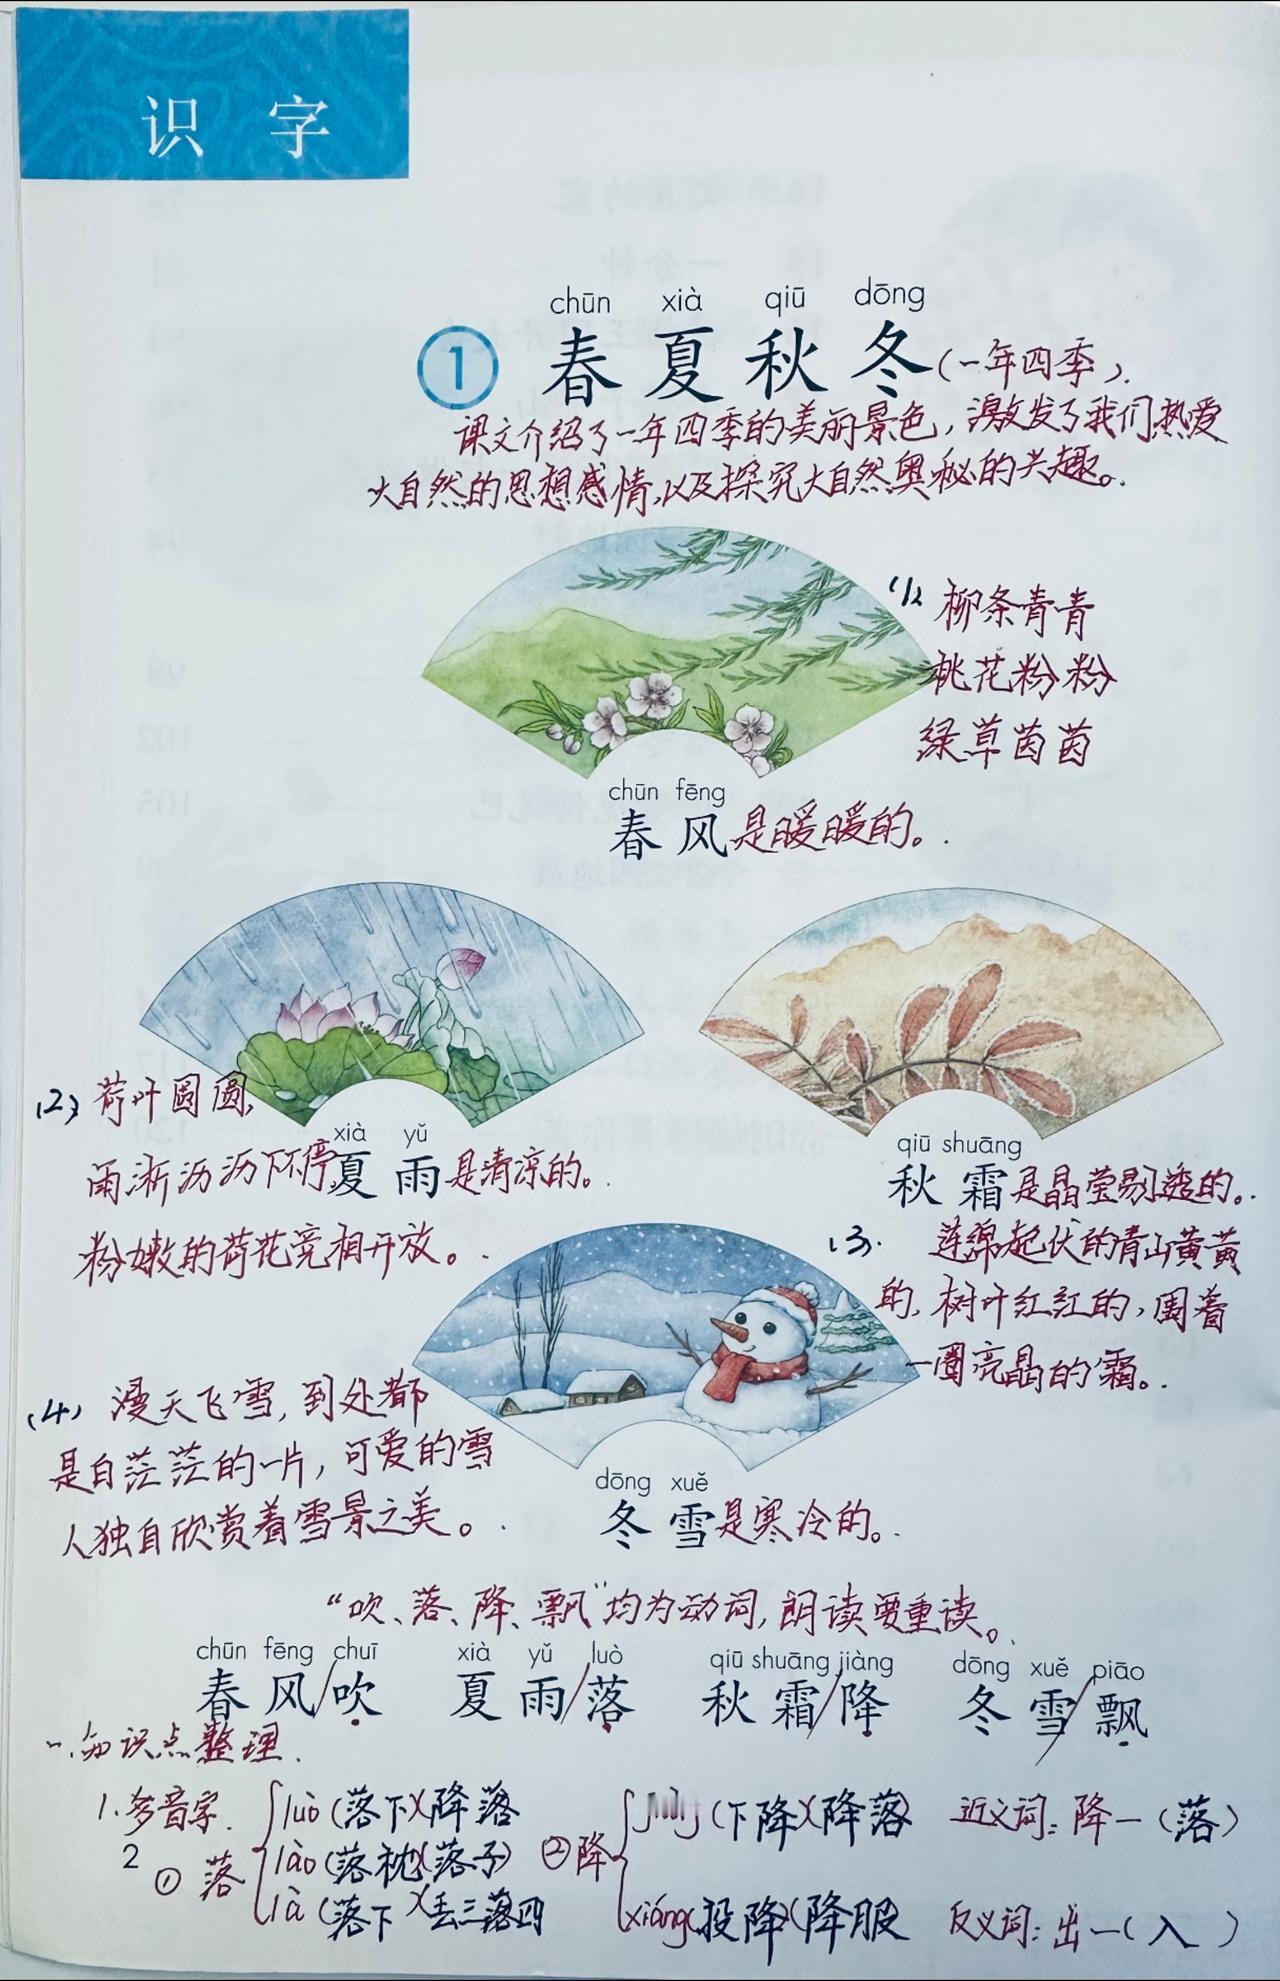 识 字
chūn xià qiū dōng
1 春 夏 秋 冬(一年四季).
课文介绍了一年四季的美丽景色，激发了我们热爱
大自然的思想感情,以及探究大自然奥秘的兴趣。
(1) 柳条青青
桃花粉粉
绿草茵茵
chūn fēng
春 风是暖暖的。
(2) 荷叶圆圆,
xià yǔ
雨淅沥沥下不停 夏 雨是清凉的。
粉嫩的荷花竞相开放。
qiū shuāng
秋 霜是晶莹剔透的。
(3). 连绵起伏的青山黄黄
的，树叶红红的，围着
一圈亮晶的霜。
(4) 漫天飞雪，到处都
是白茫茫的一片，可爱的雪
人独自欣赏着雪景之美。
dōng xuě
冬 雪是寒冷的。
“吹、落、降、飘”均为动词,朗读要重读。
chūn fēng chuī xià yǔ luò qiū shuāng jiàng dōng xuě piāo
春 风/吹 夏 雨/落 秋 霜/降 冬 雪/飘
一.知识点整理.
1.多音字.
2
① 落 luò (落下)(降落
lào (落枕)(落子)
là (落下)(丢三落四
② 降 (下降)(降落)
xiáng(投降)(降服
近义词: 降一(落)
反义词: 出一(入)